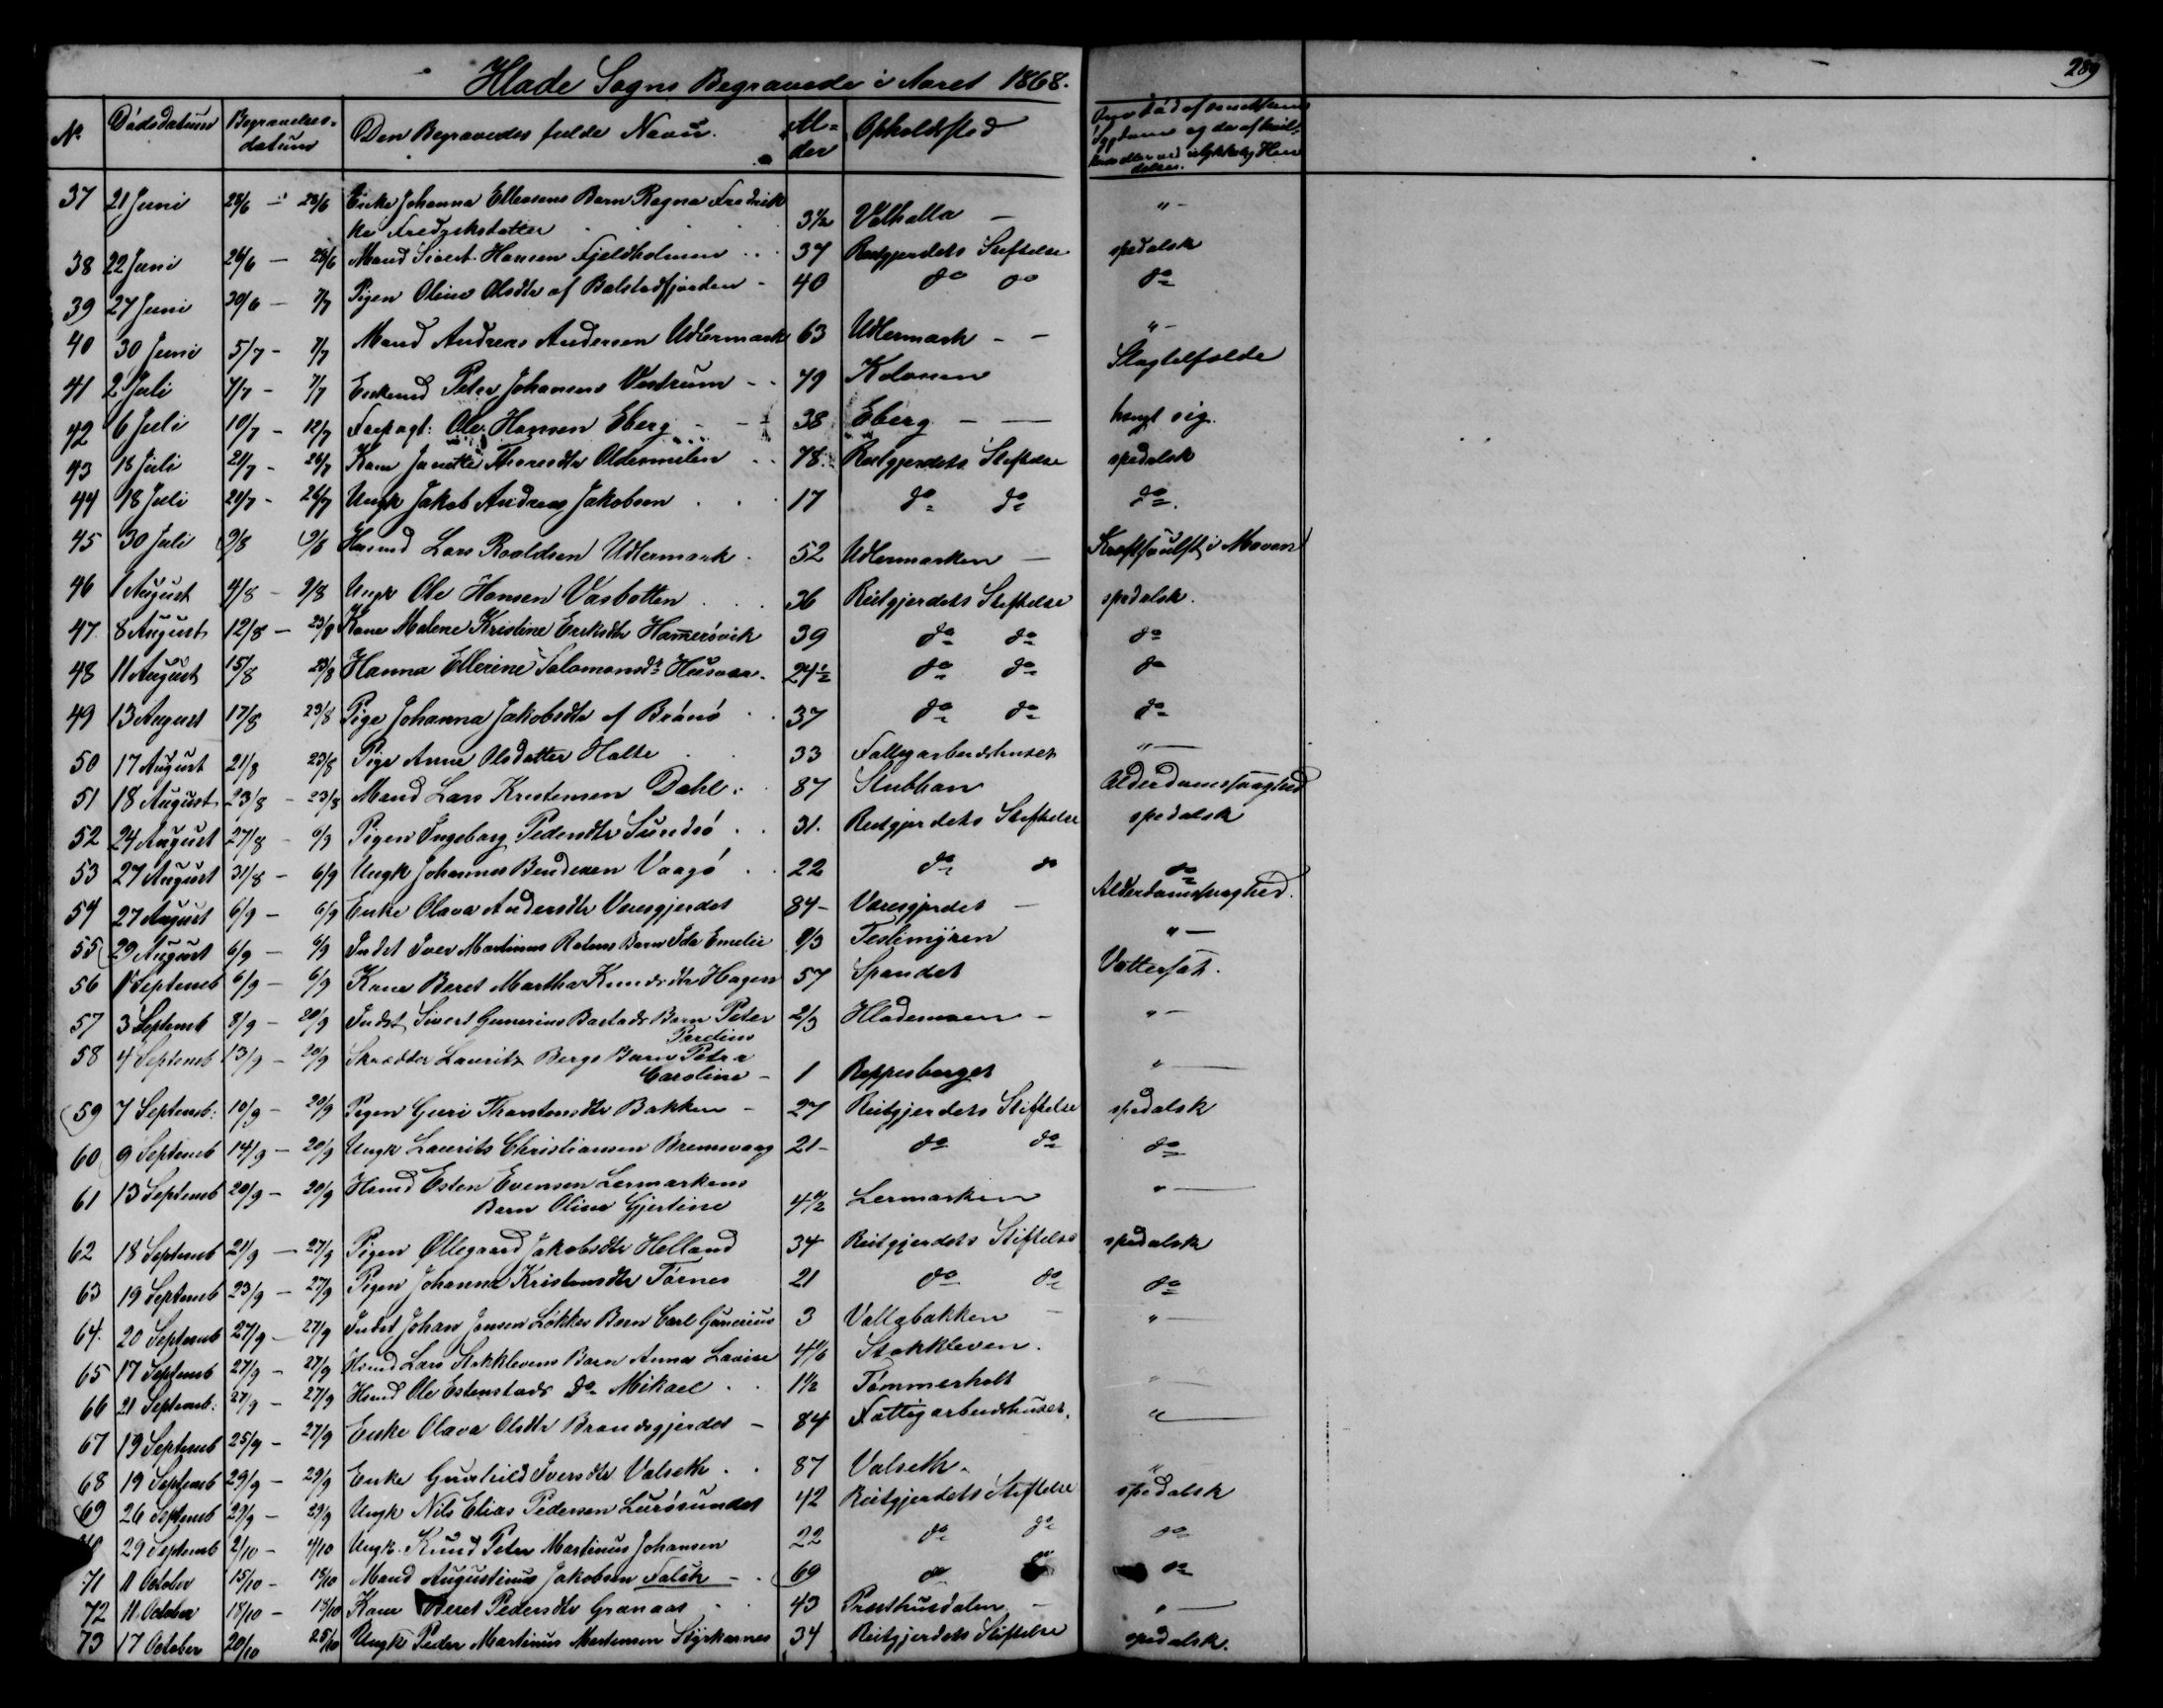 289
Hlade Sogns Begravede i Aaret 1868.
No Dødsdatum Begravelses-datum Den Begravedes fulde Navn. Al-der Opholdssted
37 21 Juni 28/6 - 28/6 Enke Johanna Ellevsens Barn Ragna Fredrik
ke Fredrikstatter 3 1/2 Valhalla - " -
38 22 Juni 26/6 - 28/6 Mand Sivert Hansen Fjeldholmen 37 Reitgjerdets Stiftelse spedalsk
39 27 Juni 30/6 - 7/7 Pigen Oline Olsdtr af Balstadfjorden - 40 do do do
40 30 Juni 5/7 - 7/7 Mand Andreas Andersen Udlermark 63 Udlermark - - " -
41 2 Juli 7/7 - 7/7 Enkemd Peter Johansens Vestrum - - 79 Slagtilfælde
42 6 Juli 10/7 - 12/7 Ole Hansen Eberg - - 38 Eberg - - hængt sig.
43 18 Juli 21/7 - 26/7 Kone Janette Thoresdtr Oldermelen 78. Reitgjerdets Stiftelse spedalsk
44 18 Juli 21/7 - 26/7 Ungk Jakob Andreas Jakobsen 17 do do do.
45 30 Juli 9/8 9/8 Husmd Lars Roaldsen Udlermark. 52 Udlermarken - i Maven
46 1 August 4/8 - 9/8 Ungk Ole Hansen Vasbotten 36 Reitgjerdets Stiftelse spedalsk.
47. 8 August 12/8 - 23/8 Kone Malene Kristine Eriksdtr Hamersvik 39 do do do
48 11 August 15/8 23/8 Hanna Ellerine Salamonsdr 24 1/2 do do do
49 13 August 17/8 23/8 Pige Johanna Jakobsdtr af Brønø 37 do do do
50 17 August 21/8 23/8 Pige Anne Olsdatter Halte 33 Fattigarbeidshuset " -
51 18 August 23/8 - 23/8 Mand Lars Kristensen Dahl. 87 Stubban Alderdomssvaghed
52 24 August 27/8 - 6/9 Pigen Ingeborg Pedersdtr Sundsø 31. Reitgjerdets Stiftelse spedalsk
53 27 August 31/8 - 6/9 Ungk Johannes Bendixen Vaagø 22 do do do
54 27 August 6/9 - 6/9 Enke Olava Andersdtr Voresgjerdet 84- Voresgjerdet - Alderdomssvaghed.
55 29 August 6/9 - 6/9 Indst Iver Martinus Barn Ida Emelie 2/3 Teslimyren " -
56 1 Septemb 6/9 - 6/9 Kone Beret Martha Knudsdtr Hagen 57 Spandet Vattersot.
57 3 Septemb 8/9 - 20/9 Indst Sivert Gunerius Bastads Barn Peter 2/3 Hlademoen - " -
58 4 Septemb 13/9 - 20/9 Skrædder Lauritz Bergs Barn Petra
Caroline - 1 Reppesberget " -
59 7 Septemb: 10/9 - 20/9 Pigen Guri Thorstensdtr Bakken - 27 Reitgjerdets Stiftelse spedalsk
60 9 Septemb 14/9 - 20/9 Ungk Laurits Christiansen Bremsvaag 21- do do do
61 13 Septemb 20/9 - 20/9 Husmd Esten Evensen Lermarkens
Barn Olina Gjertine 4 1/2 Lermarken " -
62 18 Septemb 21/9 - 27/9 Pigen Ollegaard Jakobsdtr Helland 34 Reitgjerdets Stiftelse spedalsk
63 19 Septemb 23/9 - 27/9 Pigen Johanna Kristensdtr Tornes 21 do do do
64. 20 Septemb 27/9 - 27/9 Indst Johan Jensen Løkkes Barn Carl Gunerius 3 Vollabakken - " -
65 17 Septemb 27/9 - 27/9 Husmd Lars Stokklevens Barn Anna Lovise Stokkleven.
66 21 Septemb: 27/9 - 27/9 Husmd Ole Estenstads do Mikael 1 1/2 Tømmerholt " -
67 19 Septemb 25/9 - 27/9 Enke Olava Olsdtr Brandsgjerdet - 84 Fattigarbeidshuset. " -
68 19 Septemb 29/9 - 29/9 Enke Gunhild Iversdtr Valseth 87 Valseth. "
69 26 Septemb 29/9 - 29/9 Ungk Nils Elias Pedersen Lurøsundet 42 Reitgjerdets Stiftelse spedalsk
29 Septemb 2/10 - 4/10 Ungk. Knud Peter Martinus Johansen 22 do do do
71 11 October 15/10 - 18/10 Mand Augustinus Jakobsen Falch - 69 do do do
72 11 October 18/10 - 18/10 Kone Beret Pedersdtr Granaas 43 Præsthusdalen - " -
73 17 October 20/10 25/10 Ungk Peder Martinus Mortensen Styrkesnes 34 Reitgjerdets Stiftelse spedalsk.